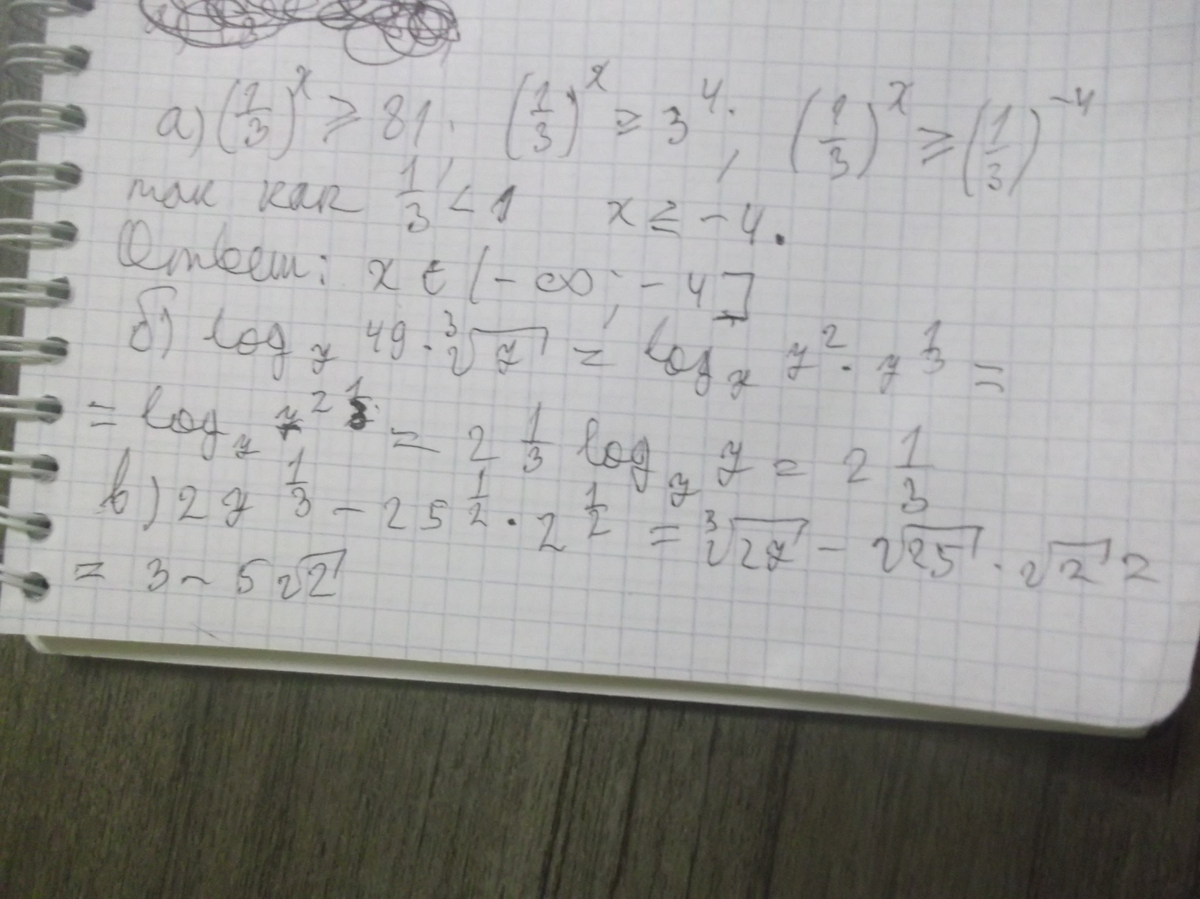 а) (1/3)^x ≥ 81; (1/3)^x ≥ 3^4; (1/3)^x ≥ (1/3)^-4
так как 1/3 < 1 x ≤ -4.
Ответ: x ∈ (-∞; -4]
б) log_7 49 · ∛7 = log_7 7^2 · 7^1/3 =
= log_7 7^2 1/3 = 2 1/3 log_7 7 = 2 1/3
в) 27^1/3 - 25^1/2 · 2^1/2 = ∛27 - √25 · √2 =
= 3 - 5√2